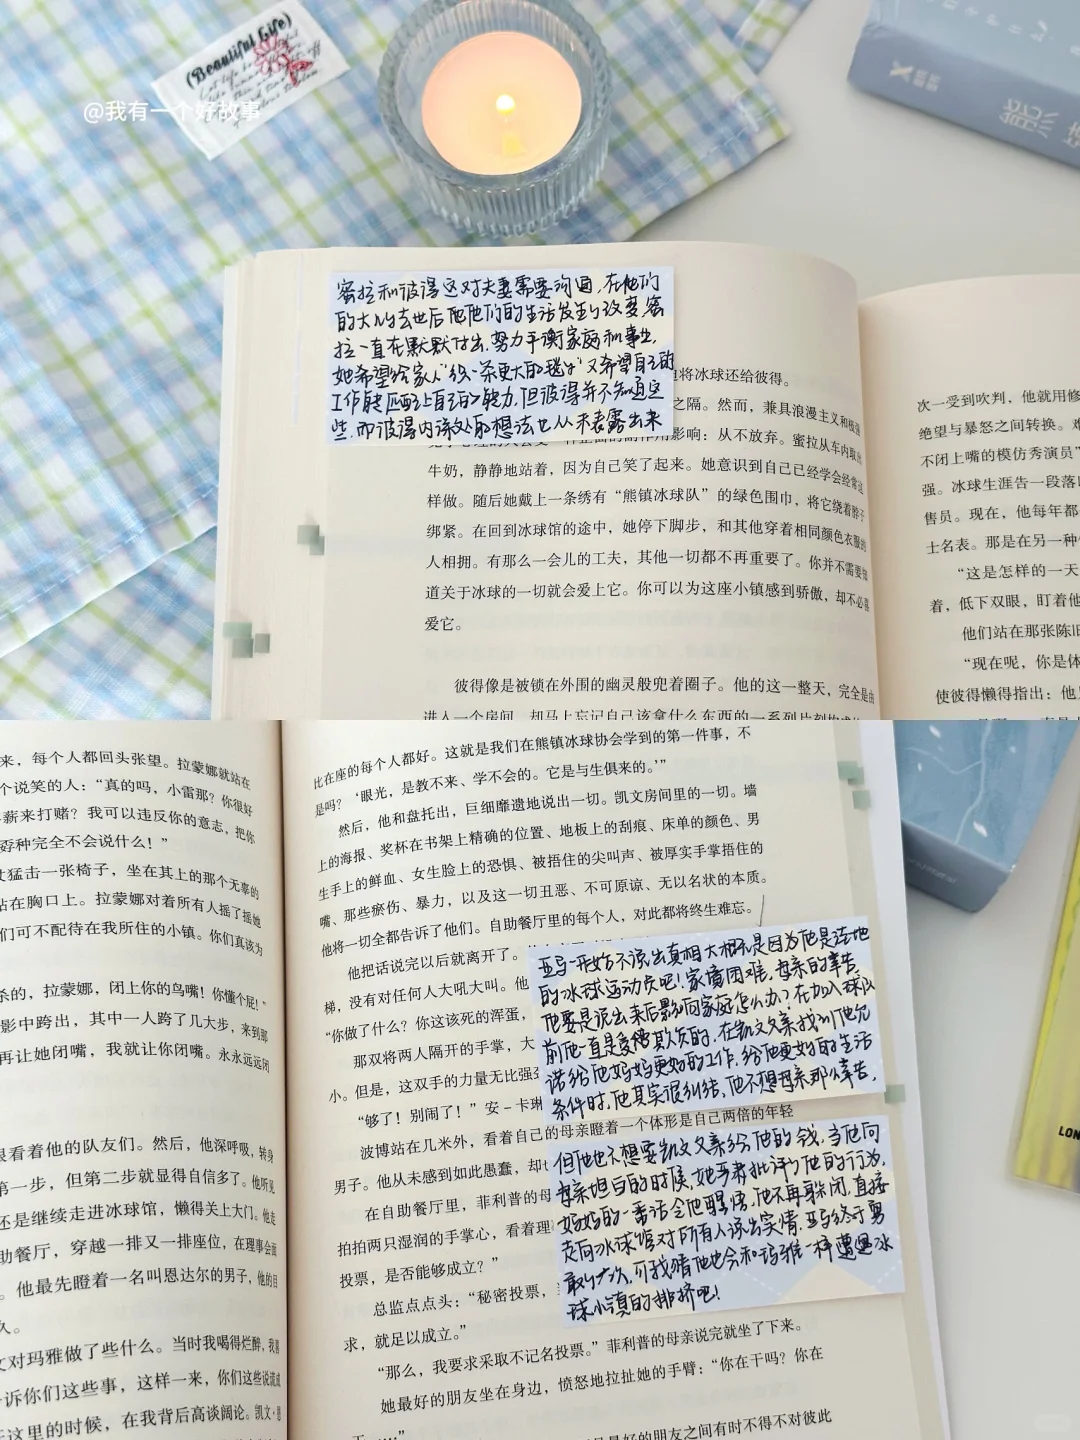 (Beautiful Life)
@我有一个好故事
蜜拉和彼得这对夫妻需要沟通,在他们
的大儿子去世后他们的生活发生了改变,蜜
拉一直在默默付出,努力平衡家庭和事业,
她希望给家人“织一条更大的毯子”又希望自己的
工作能匹配上自己的能力,但彼得并不知道这
些,而彼得内深处的想法也从未表露出来
将冰球还给彼得。
之隔。然而,兼具浪漫主义和
影响:从不放弃。蜜拉从车内取出
牛奶,静静地站着,因为自己笑了起来。她意识到自己已经学会经常这
样做。随后她戴上一条绣有“熊镇冰球队”的绿色围巾,将它绕着脖子
绑紧。在回到冰球馆的途中,她停下脚步,和其他穿着相同颜色衣服的
人相拥。有那么一会儿的工夫,其他一切都不再重要了。你并不需要知
道关于冰球的一切就会爱上它。你可以为这座小镇感到骄傲,却不必喜
爱它。
彼得像是被锁在外围的幽灵般兜着圈子。他的这一整天,完全是由
进入一个房间,却马上忘记自己该拿什么东西的一系列片刻
次一受到吹判,他就用修
绝望与暴怒之间转换。难
不闭上嘴的模仿秀演员”
强。冰球生涯告一段落
售员。现在,他每年都
士名表。那是在另一种
“这是怎样的一天
着,低下双眼,盯着他
他们站在那张陈旧
“现在呢,你是体
使彼得懒得指出:他
来,每个人都回头张望。拉蒙娜就站在
个说笑的人:“真的吗,小雷那?你很好
薪来打赌?我可以违反你的意志,把你
孬种完全不会说什么!”
猛击一张椅子,坐在其上的那个无辜的
站在胸口上。拉蒙娜对着所有人摇了摇她
们可不配待在我所住的小镇。你们真该为
杀的,拉蒙娜,闭上你的鸟嘴!你懂个屁!”
影中跨出,其中一人跨了几大步,来到那
再让她闭嘴,我就让你闭嘴。永永远远闭
眼看着他的队友们。然后,他深呼吸,转身
第一步,但第二步就显得自信多了。他听见
还是继续走进冰球馆,懒得关上大门。他走
助餐厅,穿越一排又一排座位,在理事会面
。他最先瞪着一名叫恩达尔的男子,他的目
久。
文对玛雅做了些什么。当时我喝得烂醉,我
诉你们这些事,这样一来,你们这些说谎成
在这里的时候,在我背后高谈阔论。凯文·恩
比在座的每个人都好。这就是我们在熊镇冰球协会学到的第一件事,不
是吗?‘眼光,是教不来、学不会的。它是与生俱来的。’”
然后,他和盘托出,巨细靡遗地说出一切。凯文房间里的一切。墙
上的海报、奖杯在书架上精确的位置、地板上的刮痕、床单的颜色、男
生手上的鲜血、女生脸上的恐惧、被捂住的尖叫声、被厚实手掌捂住的
嘴、那些瘀伤、暴力,以及这一切丑恶、不可原谅、无以名状的本质。
他将一切全都告诉了他们。自助餐厅里的每个人,对此都将终生难忘。
他把话说完以后就离开了。
梯,没有对任何人大吼大叫。他
“你做了什么?你这该死的浑蛋,
那双将两人隔开的手掌,大
小。但是,这双手的力量无比强
“够了!别闹了!”安-卡琳
波博站在几米外,看着自己的母亲瞪着一个体形是自己两倍的年轻
男子。他从未感到如此愚蠢,却
在自助餐厅里,菲利普的母
拍拍两只湿润的手掌心,看着理
投票,是否能够成立?”
总监点点头:“秘密投票,
求,就足以成立。”
“那么,我要求采取不记名投票。”菲利普的母亲说完就坐了下来。
她最好的朋友坐在身边,愤怒地拉扯她的手臂:“你在干吗?你在
最好的朋友之间有时不得不对彼此
亚马一开始不说出真相大概就是因为他是这地
的冰球运动员吧!家境困难,母亲的辛苦,
他要是说出来后影响家庭怎么办?在加入球队
前他一直是受人欺负的,在凯文父亲找到他允
诺给他妈妈更好的工作,给他更好的生活
条件时,他其实很纠结,他不想母亲那么辛苦,
但他也不想要凯文父亲给他的钱,当他向
母亲坦白的时候,她严肃批评了他的行为,
妈妈的一番话令他醒悟,他不再躲闭,直接
走向冰球馆对所有人说出实情,亚马终于勇
敢了一次,可我猜他也会和玛雅一样遭遇冰
球小镇的排挤吧!
LON